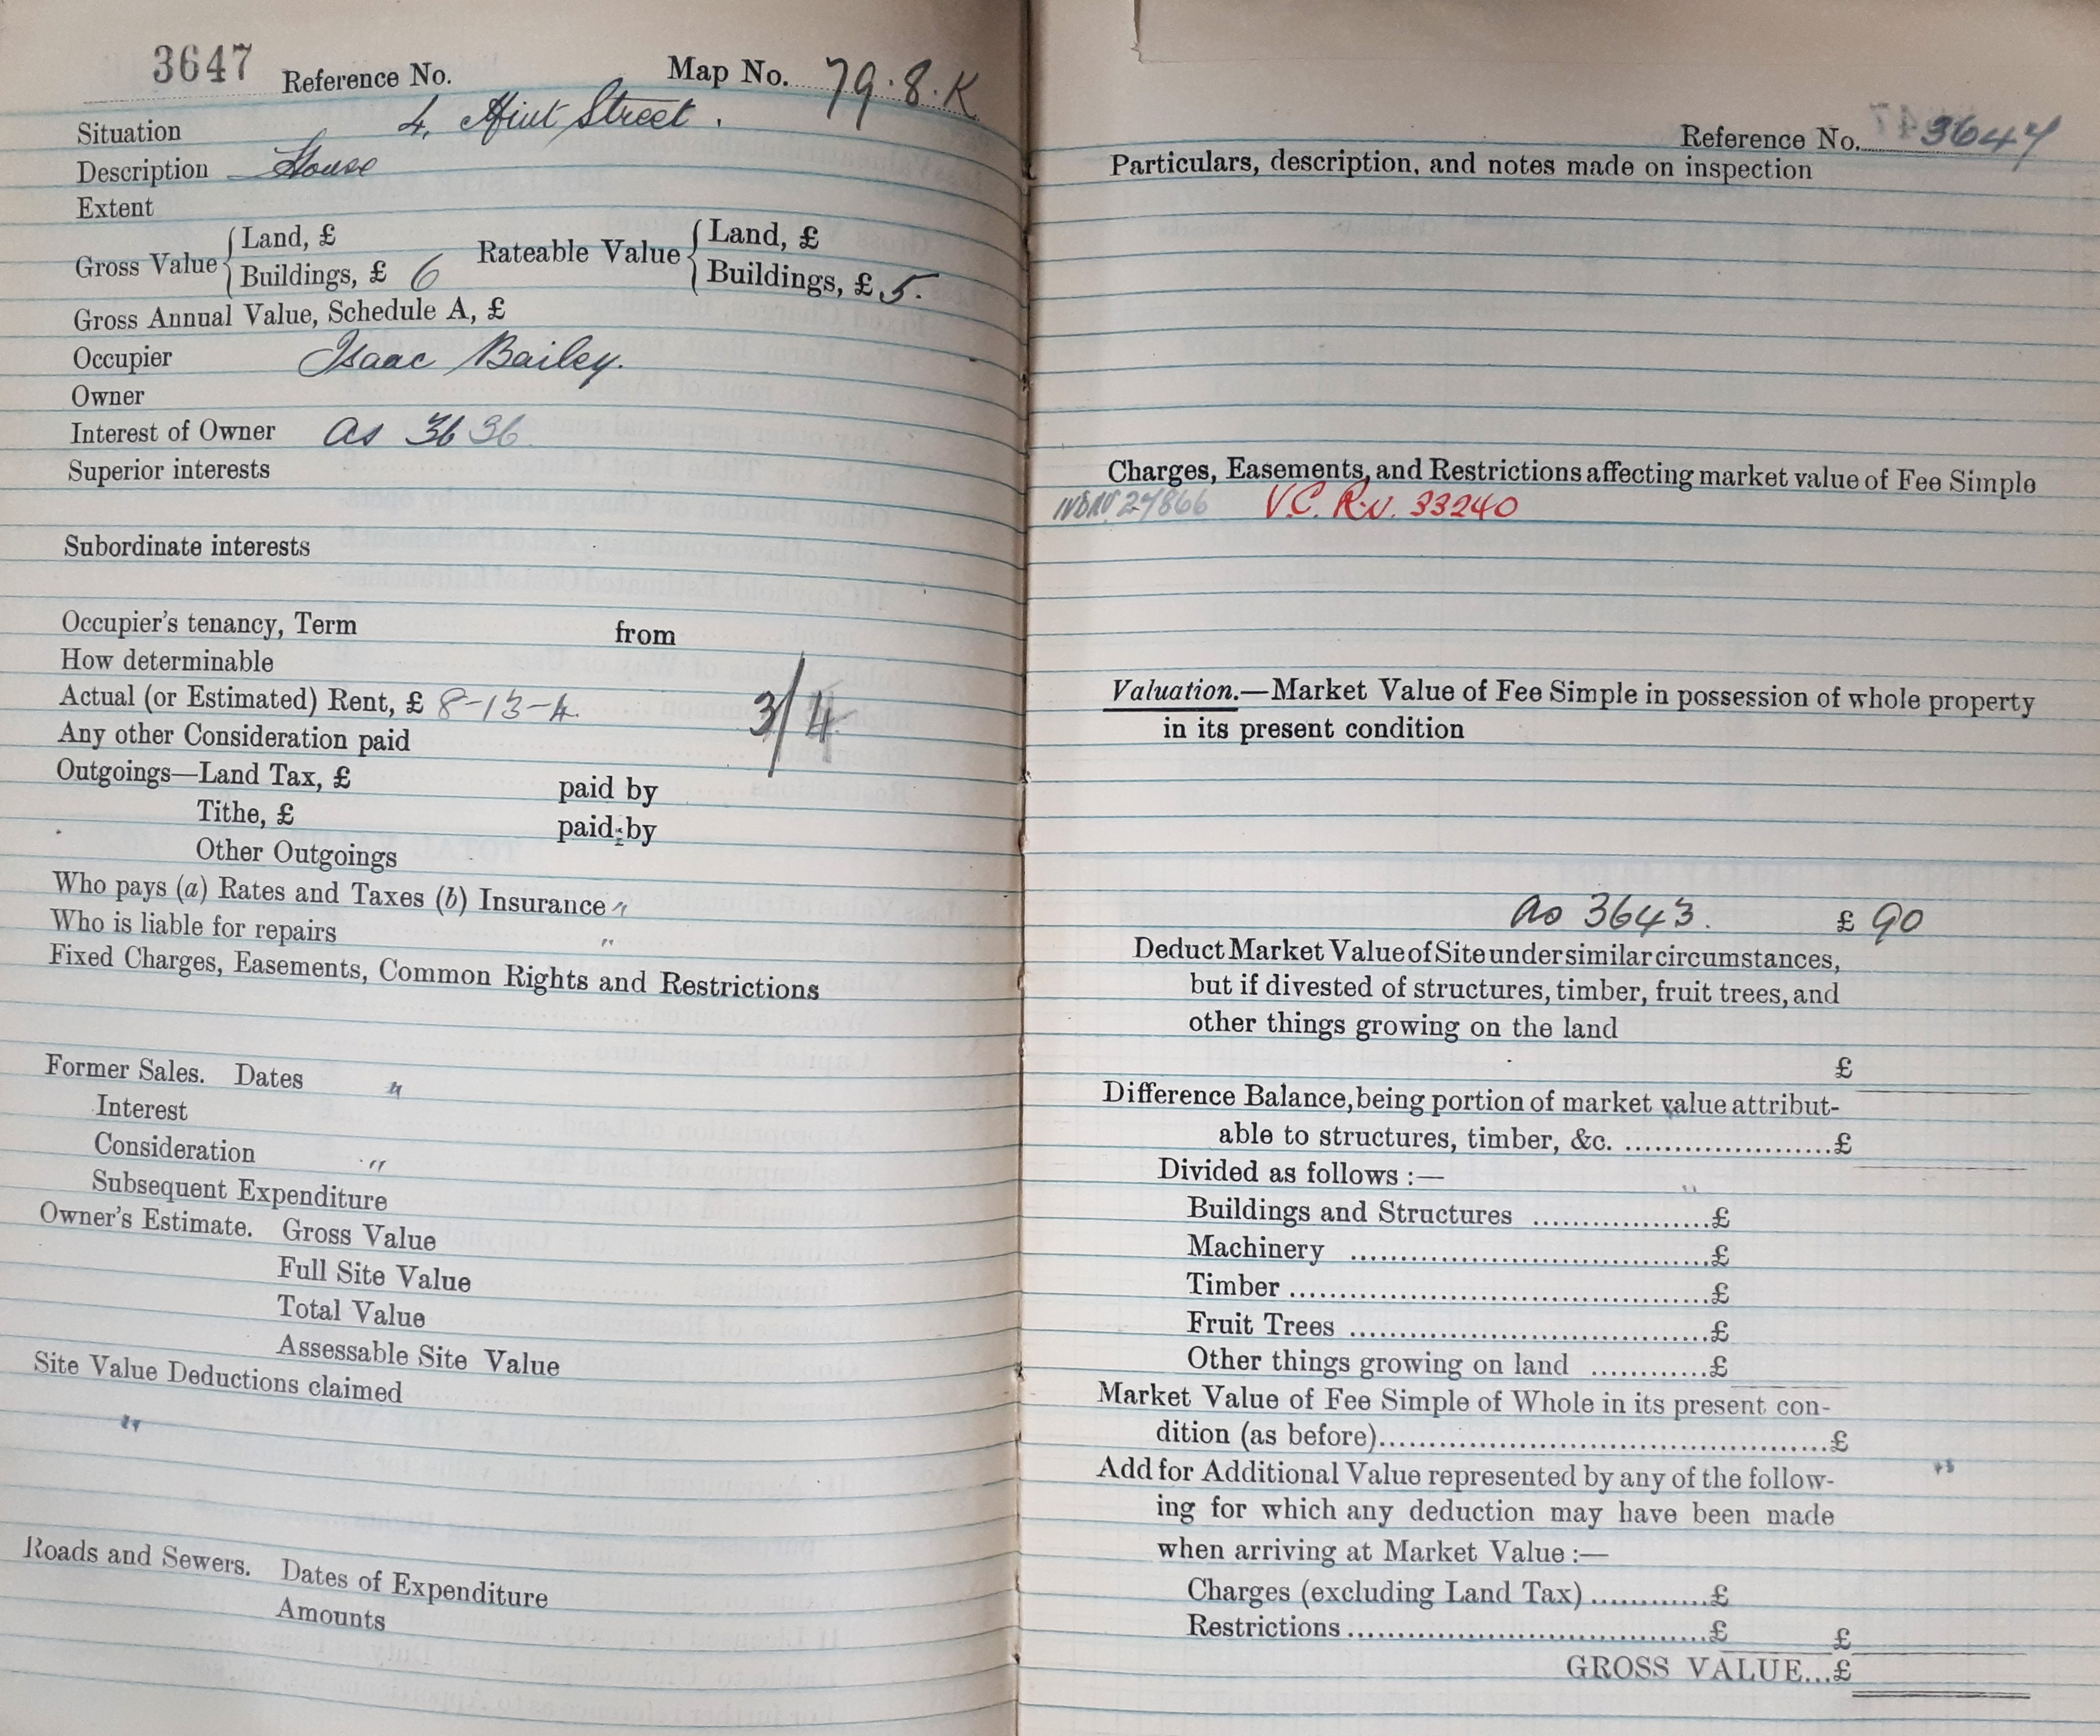 3647 Reference No. Map No. 79.8.K
Situation 4, Street.
Description House
Extent
Gross Value { Land, £
Buildings, £ 6
Rateable Value { Land, £
Buildings, £ 5.
Gross Annual Value, Schedule A, £
Occupier Isaac Bailey.
Owner
Interest of Owner as 3636
Superior interests
Subordinate interests
Occupier's tenancy, Term from
How determinable
Actual (or Estimated) Rent, £ 8-13-4. 3/4
Any other Consideration paid
Outgoings—Land Tax, £ paid by
Tithe, £ paid by
Other Outgoings
Who pays (a) Rates and Taxes (b) Insurance "
Who is liable for repairs "
Fixed Charges, Easements, Common Rights and Restrictions
Former Sales. Dates "
Interest
Consideration "
Subsequent Expenditure
Owner's Estimate. Gross Value
Full Site Value
Total Value
Assessable Site Value
Site Value Deductions claimed
"
Roads and Sewers. Dates of Expenditure
Amounts
Reference No. 3647
Particulars, description, and notes made on inspection
Charges, Easements, and Restrictions affecting market value of Fee Simple
27866 V.C. R.N. 33240
Valuation.—Market Value of Fee Simple in possession of whole property
in its present condition
as 3643. £ 90
Deduct Market Value of Site under similar circumstances,
but if divested of structures, timber, fruit trees, and
other things growing on the land
£
Difference Balance, being portion of market value attribut-
able to structures, timber, &c. .....................£
Divided as follows :—
"
Buildings and Structures ..................£
Machinery ....................................£
Timber ..........................................£
Fruit Trees ....................................£
Other things growing on land ............£
Market Value of Fee Simple of Whole in its present con-
dition (as before).............................................£
Add for Additional Value represented by any of the follow-
ing for which any deduction may have been made
when arriving at Market Value :—
Charges (excluding Land Tax) ............£
Restrictions ....................................£ £
GROSS VALUE...£